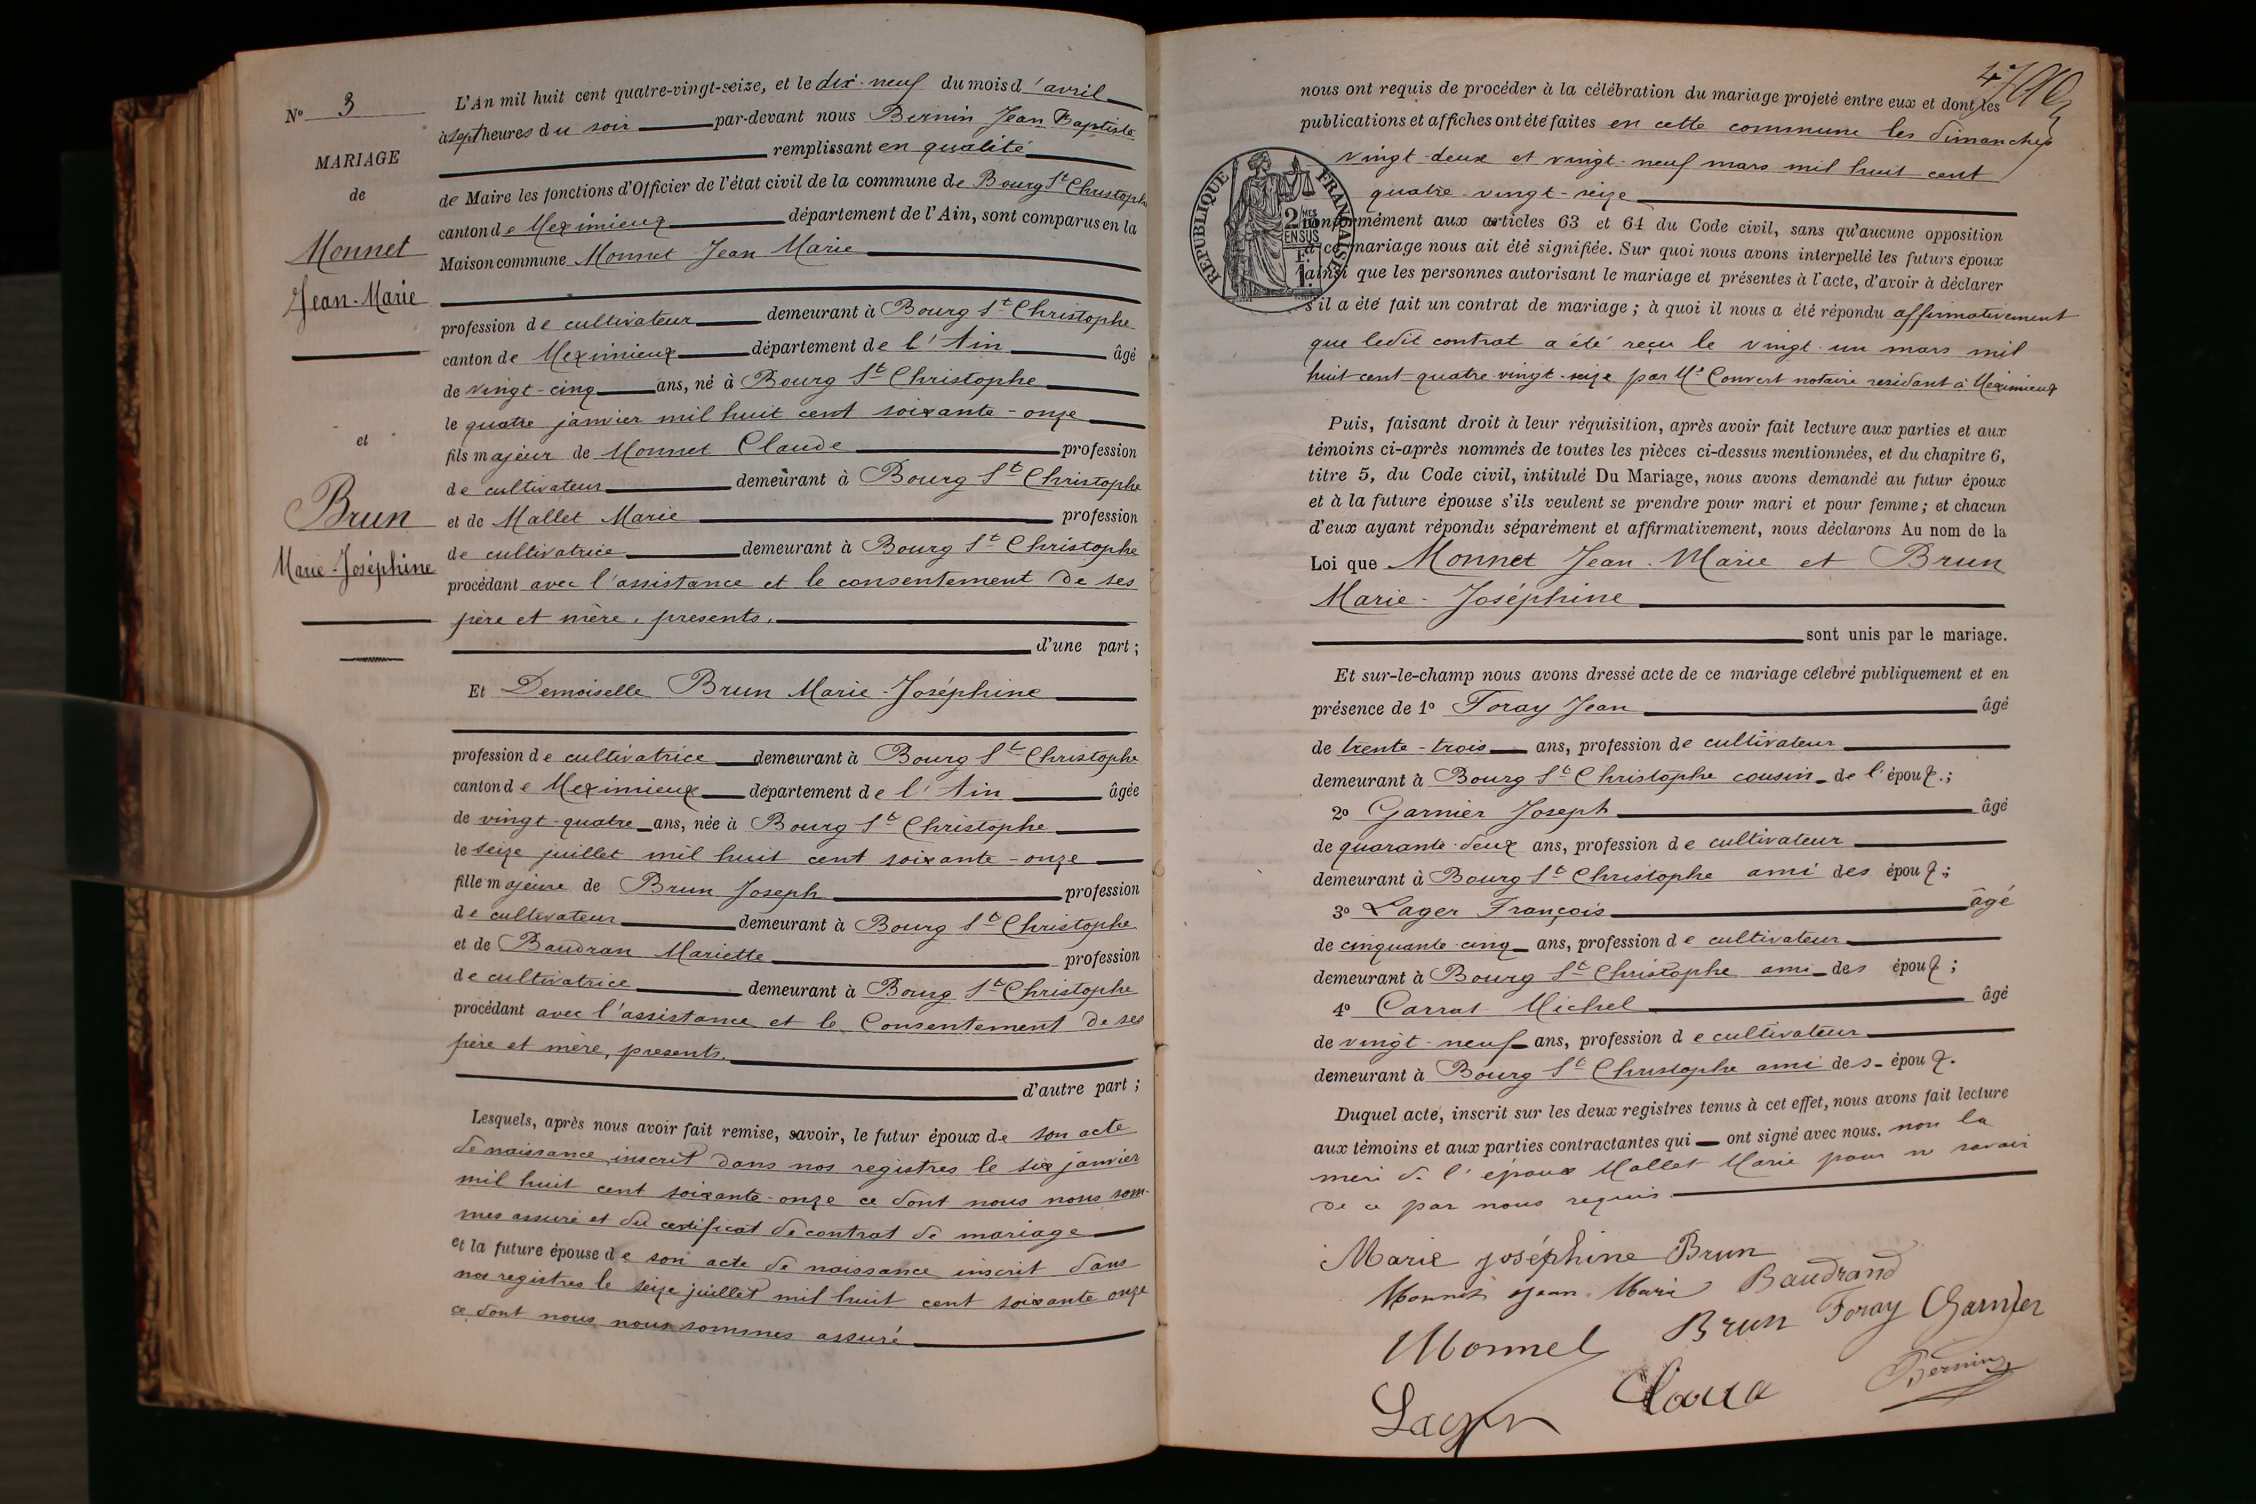 N° 3
MARIAGE
de
Monnet
Jean-Marie
et
Brun
Marie-Joséphine
L'An mil huit cent quatre-vingt-seize, et le dix-neuf du mois d'avril
à sept heures du soir par-devant nous Bernin Jean Baptiste
remplissant en qualité
de Maire les fonctions d'Officier de l'état civil de la commune de Bourg St Christophe
canton de Meximieux département de l'Ain, sont comparus en la
Maison commune Monnet Jean Marie
profession de cultivateur demeurant à Bourg St Christophe
canton de Meximieux département de l'Ain âgé
de vingt-cinq ans, né à Bourg St Christophe
le quatre janvier mil huit cent soixante-onze
fils majeur de Monnet Claude profession
de cultivateur demeurant à Bourg St Christophe
et de Mallet Marie profession
de cultivatrice demeurant à Bourg St Christophe
procédant avec l'assistance et le consentement de ses
père et mère, presents.
d'une part ;
Et Demoiselle Brun Marie-Joséphine
profession de cultivatrice demeurant à Bourg St Christophe
canton de Meximieux département de l'Ain âgée
de vingt-quatre ans, née à Bourg St Christophe
le seize juillet mil huit cent soixante-onze
fille majeure de Brun Joseph profession
de cultivateur demeurant à Bourg St Christophe
et de Baudran Mariette profession
de cultivatrice demeurant à Bourg St Christophe
procédant avec l'assistance et le Consentement de ses
père et mère, presents.
d'autre part ;
Lesquels, après nous avoir fait remise, savoir, le futur époux de son acte
de naissance inscrit dans nos registres le six janvier
mil huit cent soixante-onze ce dont nous nous som-
mes assuré et du certificat de contrat de mariage
et la future épouse de son acte de naissance inscrit dans
nos registres le seize juillet mil huit cent soixante onze
ce dont nous nous sommes assuré
47
nous ont requis de procéder à la célébration du mariage projeté entre eux et dont les
publications et affiches ont été faites en cette commune les dimanches
vingt-deux et vingt-neuf mars mil huit cent
quatre-vingt-seize
RÉPUBLIQUE FRANÇAISE
2 MES EN SUS
1 F.
conformément aux articles 63 et 64 du Code civil, sans qu'aucune opposition
à ce mariage nous ait été signifiée. Sur quoi nous avons interpellé les futurs époux
ainsi que les personnes autorisant le mariage et présentes à l'acte, d'avoir à déclarer
s'il a été fait un contrat de mariage ; à quoi il nous a été répondu affirmativement
que ledit contrat a été reçu le vingt-un mars mil
huit cent quatre-vingt-seize par Me Convert notaire residant à Meximieux
Puis, faisant droit à leur réquisition, après avoir fait lecture aux parties et aux
témoins ci-après nommés de toutes les pièces ci-dessus mentionnées, et du chapitre 6,
titre 5, du Code civil, intitulé Du Mariage, nous avons demandé au futur époux
et à la future épouse s'ils veulent se prendre pour mari et pour femme ; et chacun
d'eux ayant répondu séparément et affirmativement, nous déclarons Au nom de la
Loi que Monnet Jean-Marie et Brun
Marie-Joséphine
sont unis par le mariage.
Et sur-le-champ nous avons dressé acte de ce mariage célébré publiquement et en
présence de 1° Foray Jean âgé
de trente-trois ans, profession de cultivateur
demeurant à Bourg St Christophe cousin de l'époux ;
2° Garnier Joseph âgé
de quarante-deux ans, profession de cultivateur
demeurant à Bourg St Christophe ami des époux ;
3° Lager François âgé
de cinquante-cinq ans, profession de cultivateur
demeurant à Bourg St Christophe ami des époux ;
4° Carrat Michel âgé
de vingt-neuf ans, profession de cultivateur
demeurant à Bourg St Christophe ami des époux.
Duquel acte, inscrit sur les deux registres tenus à cet effet, nous avons fait lecture
aux témoins et aux parties contractantes qui ont signé avec nous. non la
mère de l'époux Mallet Marie pour ne savoir
de ce par nous requis
Marie joséphine Brun
Monnet Jean Marie Baudrand
Monnet Brun Foray Garnier
Lager Bernin